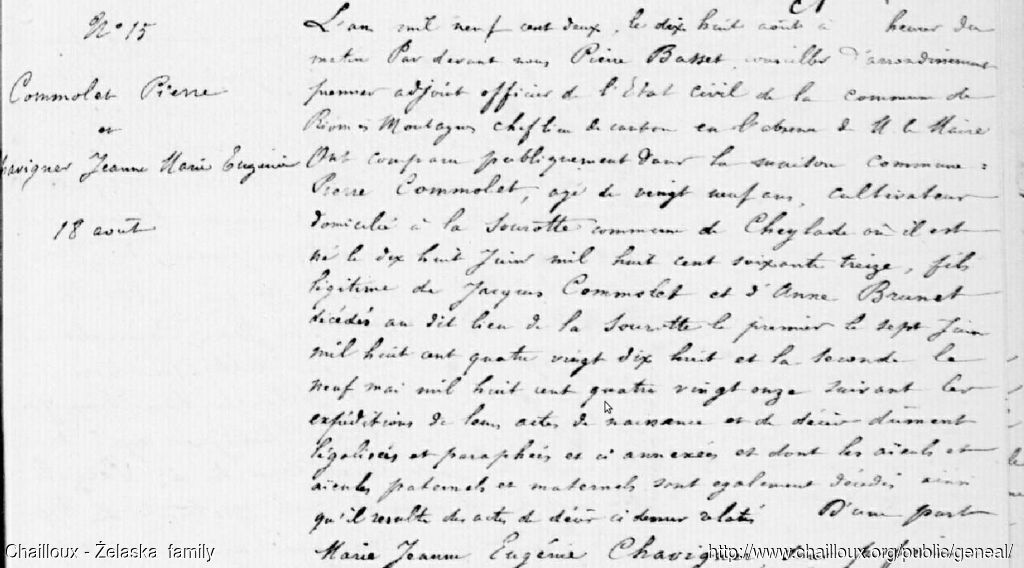 N° 15
Commolet Pierre
et
Chavigner Jeanne Marie Eugénie
18 août
L'an mil neuf cent deux, le dix huit août à heure du
matin Par devant nous Pierre Basset conseiller d'arrondissement
premier adjoint officier de l'Etat civil de la commune de
Riom ès Montagnes chef lieu de canton en l'absence de M. le Maire
Ont comparu publiquement dans la maison commune :
Pierre Commolet, agé de vingt neuf ans, cultivateur
domicilié à la Sourotte commune de Cheylade où il est
né le dix huit Juin mil huit cent soixante treize, fils
légitime de Jacques Commolet et d'Anne Brunet
décédés au dit lieu de la Sourotte le premier le sept Juin
mil huit cent quatre vingt dix huit et la seconde le
neuf mai mil huit cent quatre vingt onze suivant les
expéditions de leurs actes de naissance et de décès dûment
légalisées et paraphées et ci annexées et dont les aïeuls et
aïeules paternels et maternels sont également décédés ainsi
qu'il résulte des actes de décès ci dessus relatés D'une part
Marie Jeanne Eugénie Chavigner, sans profession
Chailloux - Żelaska family
http://www.chailloux.org/public/geneal/